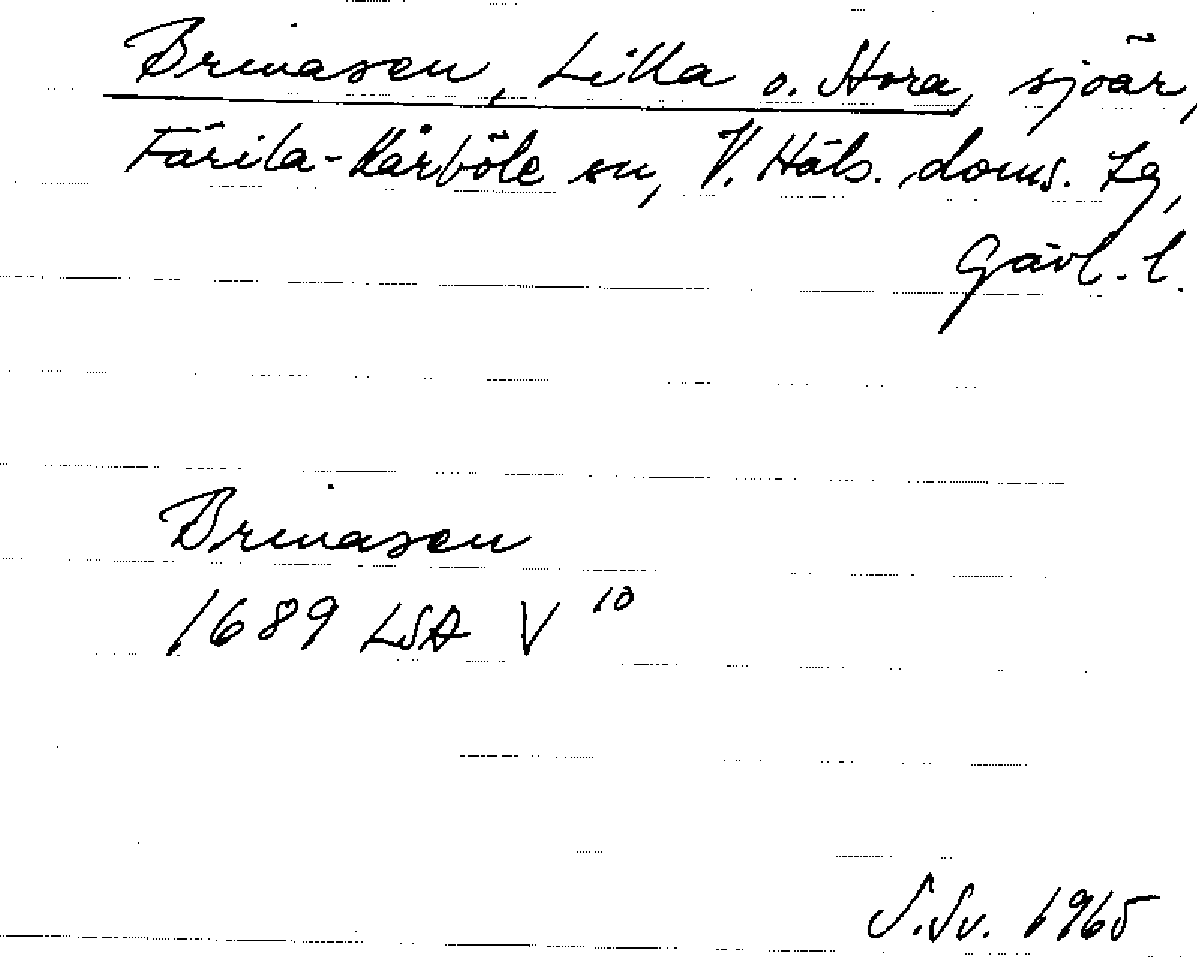 Brinasen, Lilla o. Stora, sjöar,
Färila-Kårböle sn, V. Häls. doms. tg,
Gävl. l.
Brinasen
1689 LSA V 10
S.Sv. 1965